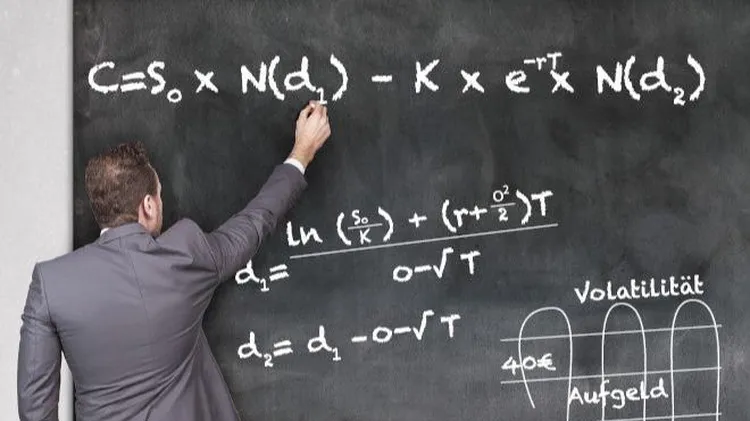 C=S₀ x N(d₁) - K x e⁻ʳᵀ x N(d₂)
d₁= ln (S₀/K) + (r+o²/2)T / o-√T
d₂= d₁ -o-√T
Volatilität
40€
Aufgeld